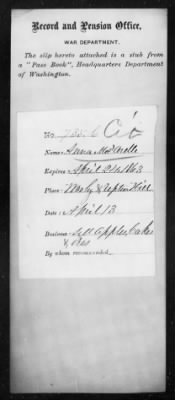 Record and Pension Office,
WAR DEPARTMENT.
The slip hereto attached is a stub from
a "Pass Book", Headquarters Department
of Washington.
No.
Name: Anna
Expires April 21st 1863
Place: & Upton Hill
Date: April 13
Business: Sell Apples, Cakes
& Pies
By whom recommended